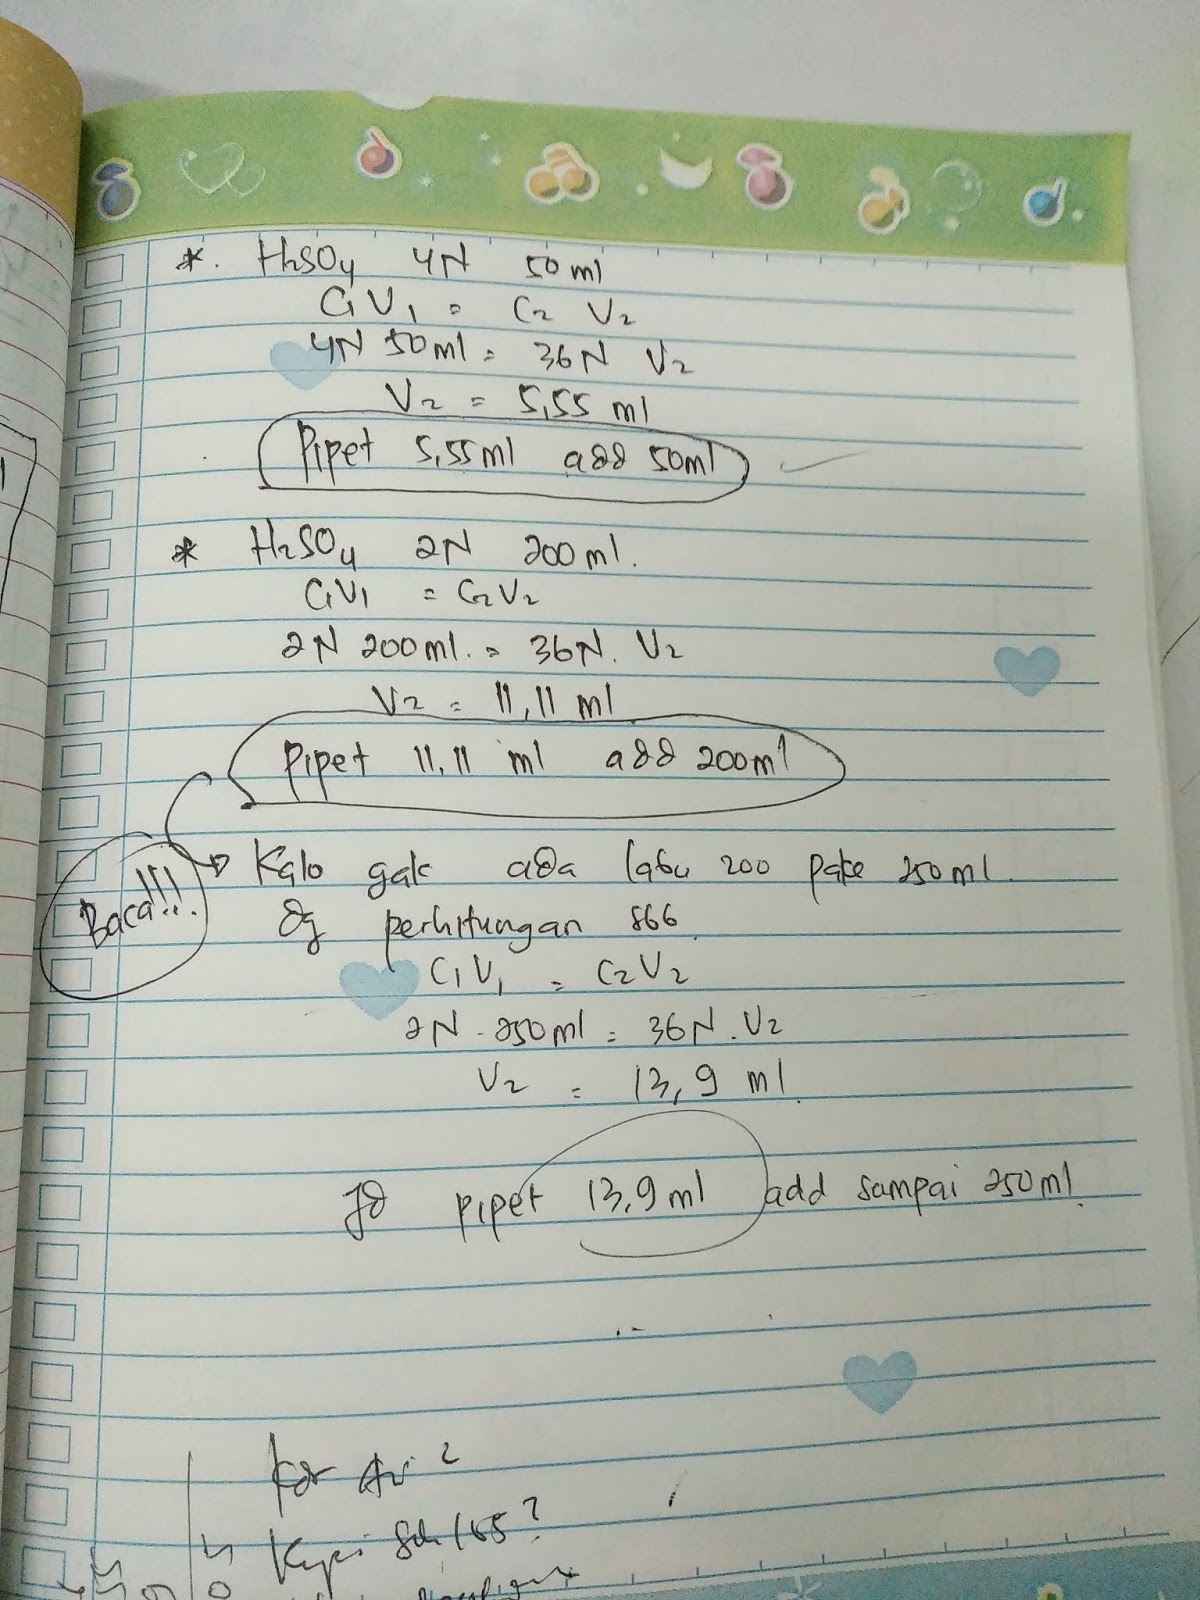 *. H2SO4 4N 50 ml
C1 V1 = C2 V2
4N 50 ml = 36N V2
V2 = 5,55 ml
Pipet 5,55 ml add 50 ml
* H2SO4 2N 200 ml.
C1V1 = C2V2
2N 200 ml. = 36N. V2
V2 = 11,11 ml
Pipet 11,11 ml add 200 ml
Baca!!!
Kalo gak ada labu 200 pake 250 ml.
dg perhitungan sbb
C1V1 = C2V2
2N . 250 ml = 36N . V2
V2 = 13,9 ml.
Jd pipet 13,9 ml add sampai 250 ml.